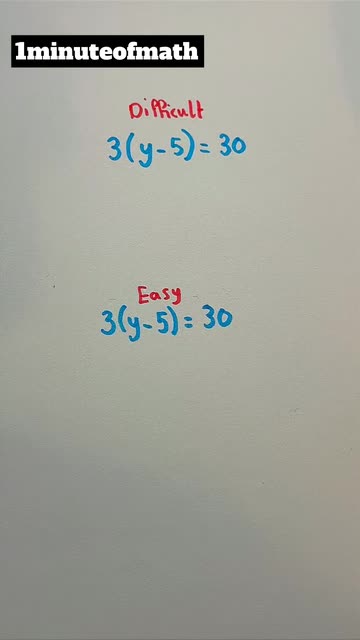 1minuteofmath
Difficult
3(y-5)=30
Easy
3(y-5)=30